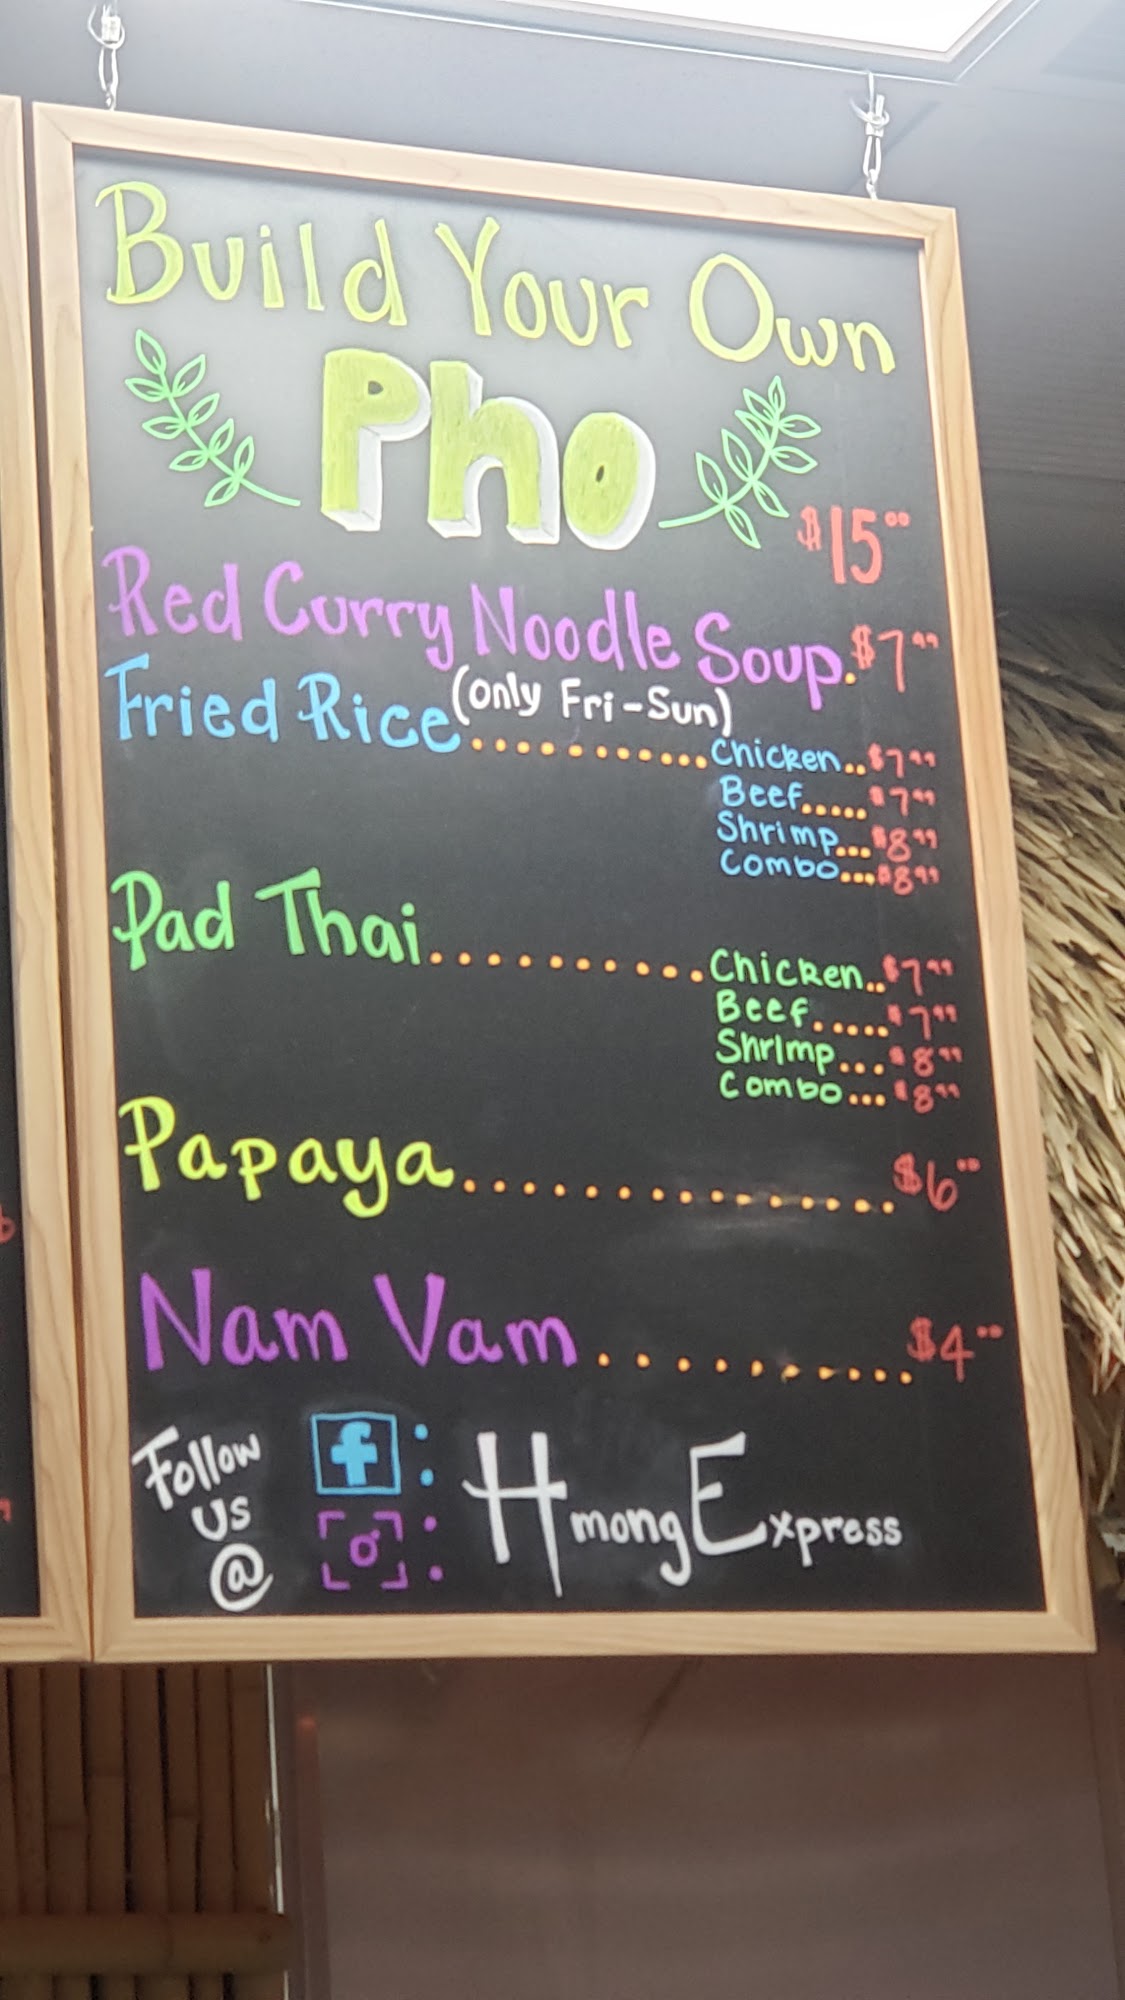 Build Your Own
Pho
$15.00
Red Curry Noodle Soup. $7.99
(only Fri-Sun)
Fried Rice...........Chicken..$7.99
Beef.....$7.99
Shrimp...$8.99
Combo...$8.99
Pad Thai..........Chicken..$7.99
Beef.....$7.99
Shrimp...$8.99
Combo...$8.99
Papaya...............$6.00
Nam Vam...........$4.00
Follow
us
@
f : HmongExpress